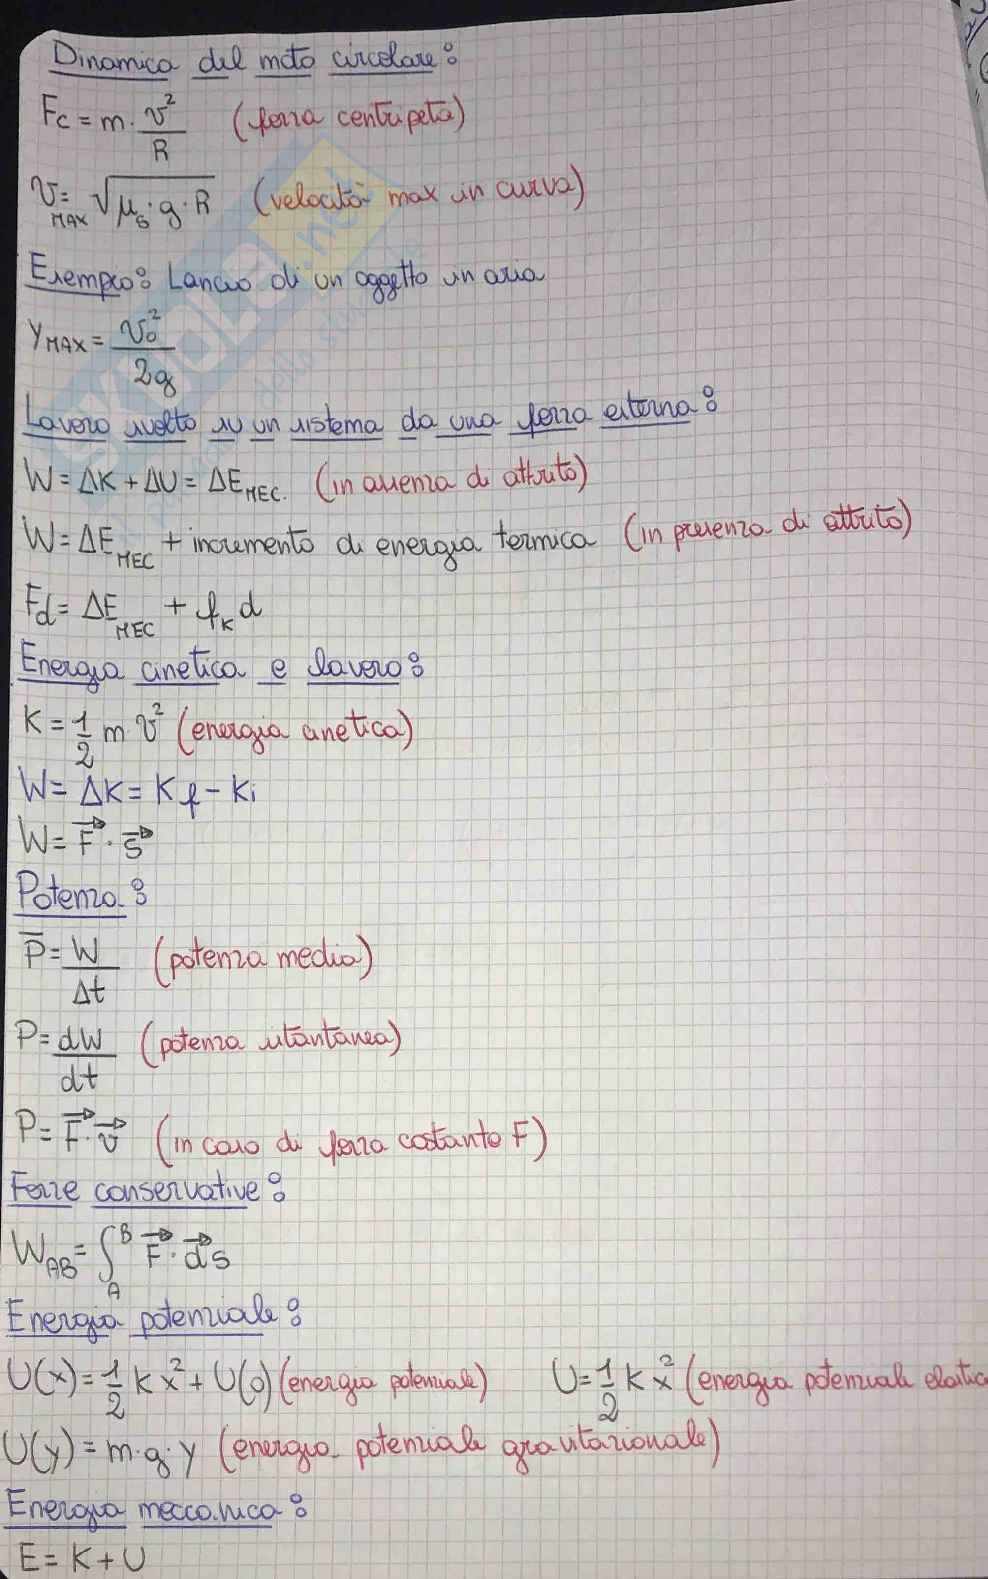 Dinamica del moto circolare:
Fc = m · v²/R (forza centripeta)
v MAX = √(μs · g · R) (velocità max in curva)
Esempio: Lancio di un oggetto in aria
yMAX = v₀²/2g
Lavoro svolto su un sistema da una forza esterna:
W = ΔK + ΔU = ΔE MEC. (in assenza di attrito)
W = ΔE MEC + incremento di energia termica (in presenza di attrito)
Fd = ΔE MEC + fK d
Energia cinetica e lavoro:
K = 1/2 m v² (energia cinetica)
W = ΔK = Kf - Ki
W = F⃗ · s⃗
Potenza:
P̅ = W/Δt (potenza media)
P = dW/dt (potenza istantanea)
P = F⃗ · v⃗ (in caso di forza costante F)
Forze conservative:
W AB = ∫ᴬᴮ F⃗ · d⃗s
Energia potenziale:
U(x) = 1/2 K x² + U(0) (energia potenziale) U = 1/2 K x² (energia potenziale elastica
U(y) = m · g · y (energia potenziale gravitazionale)
Energia meccanica:
E = K + U
SKUOLA.net